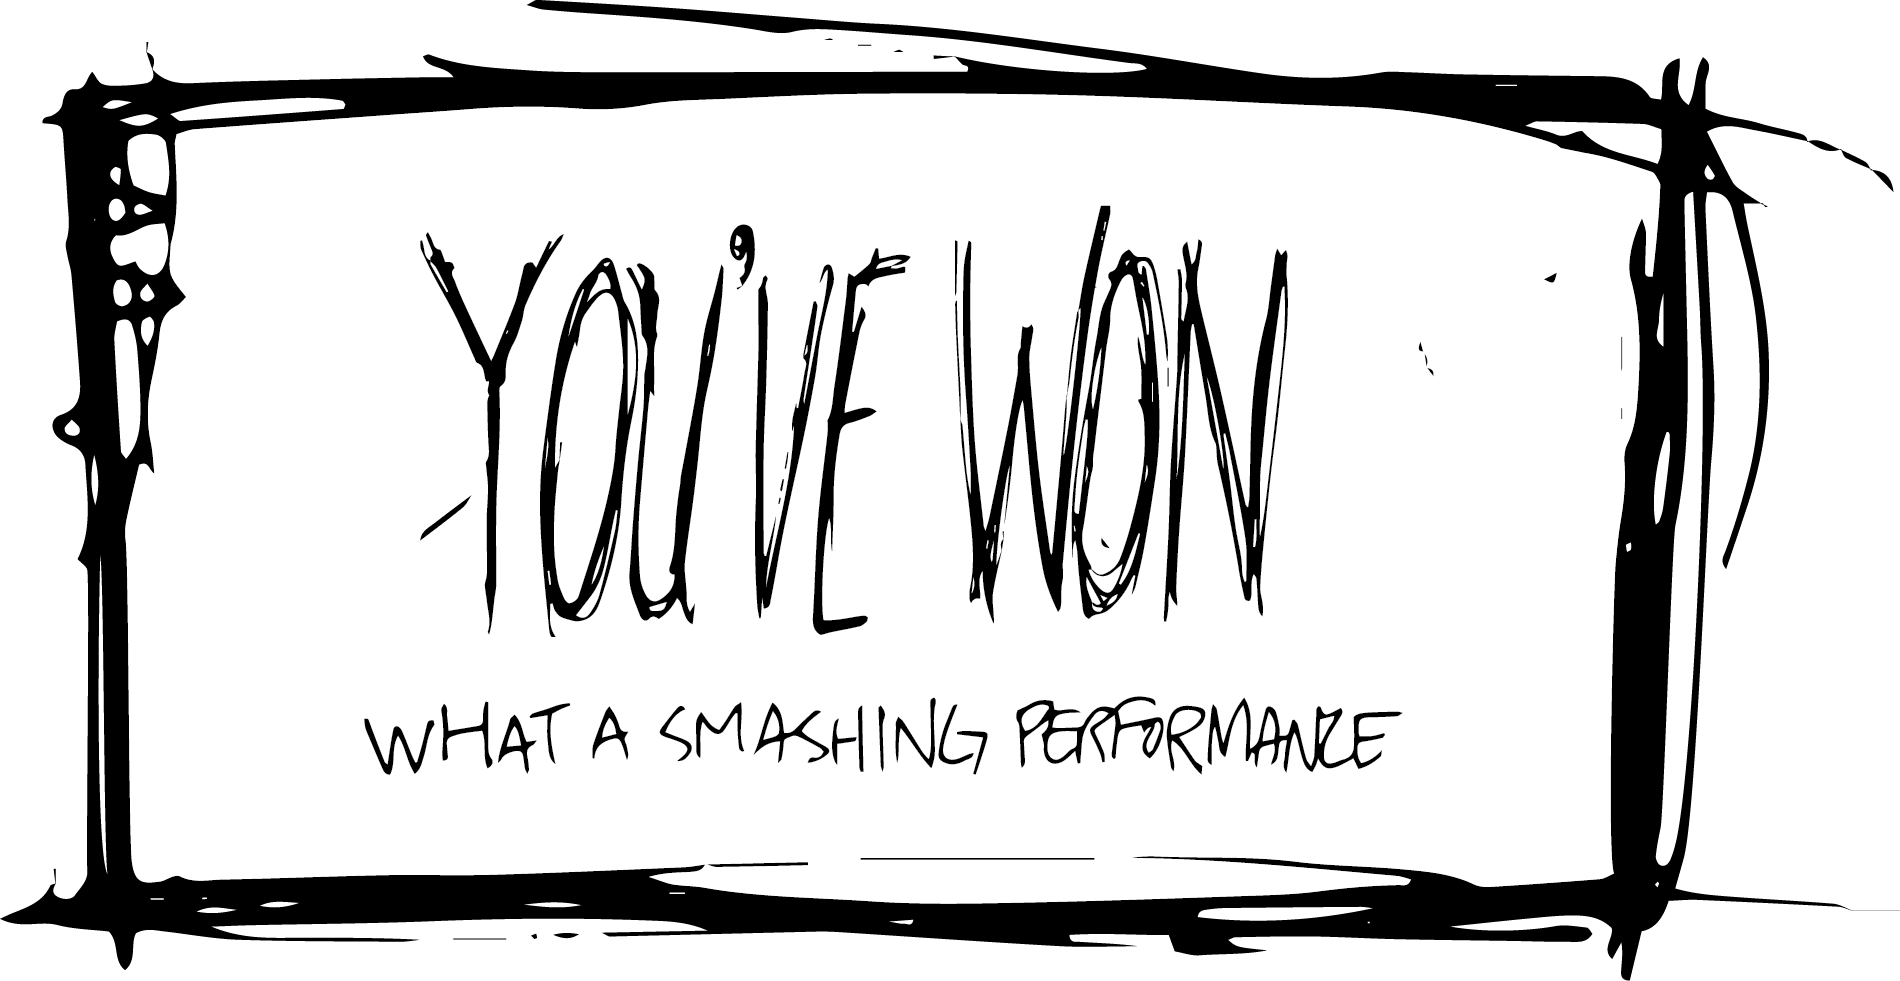 YOU'VE WON
WHAT A SMASHING PERFORMANCE